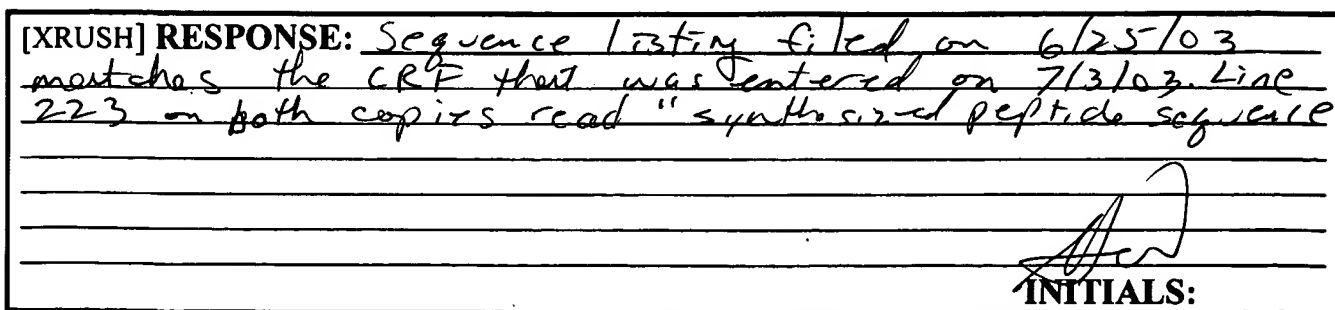 [XRUSH] RESPONSE: Sequence listing filed on 6/25/03
matches the CRF that was entered on 7/3/03. Line
223 on both copies read "synthesized peptide sequence
INITIALS: